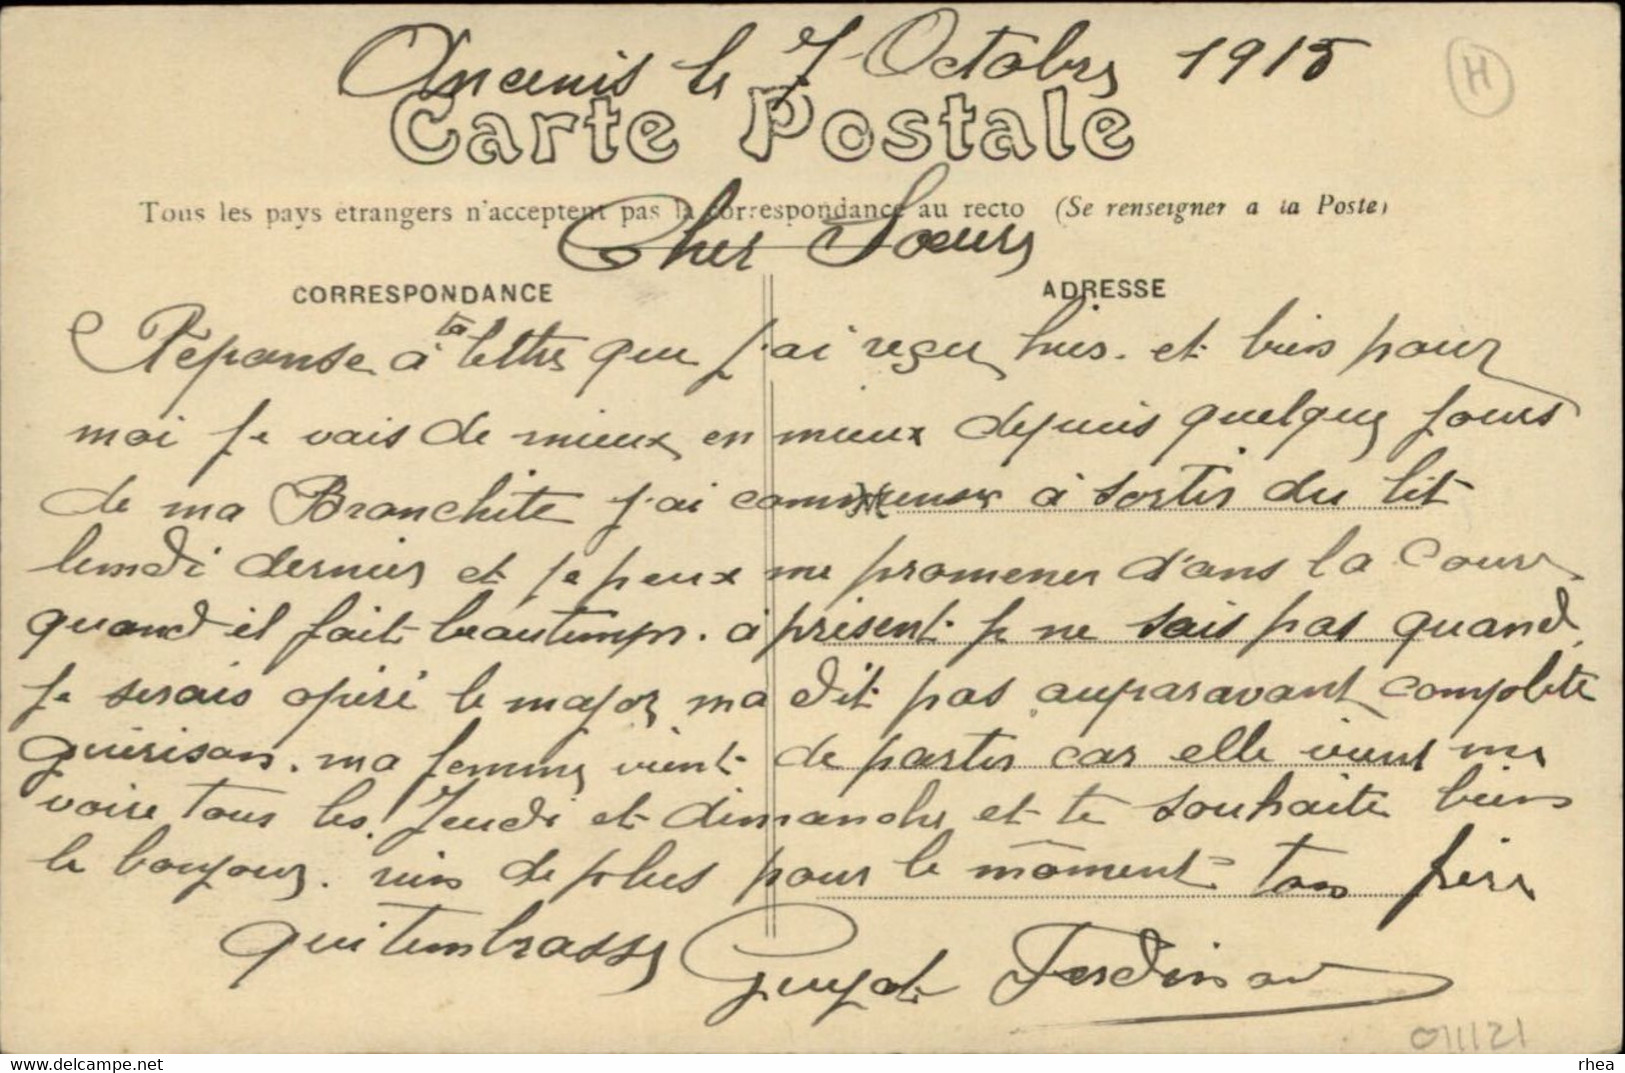 Ancenis le 7 Octobre 1915
H
Carte Postale
Tous les pays étrangers n'acceptent pas la correspondance au recto (Se renseigner à la Poste)
Cher Sœurs
CORRESPONDANCE ADRESSE
Réponse à ta lettre que j'ai reçu hier. et bien pour
moi je vais de mieux en mieux depuis quelque jours
de ma Bronchite j'ai commencer à sortir du lit
lundi dernier et je peux me promener d'ans la Cour
quand il fait beautemps. a présent je ne sais pas quand
je serais opéré le major ma dit pas auparavant complète
guérison. ma femme vient de partir car elle vient me
voire tous les Jeudi et dimanche et te souhaite bien
le bonjour. rien de plus pour le moment ton frère
qui tembrasse Guyot Ferdinand
011121
delcampe.net
rhea